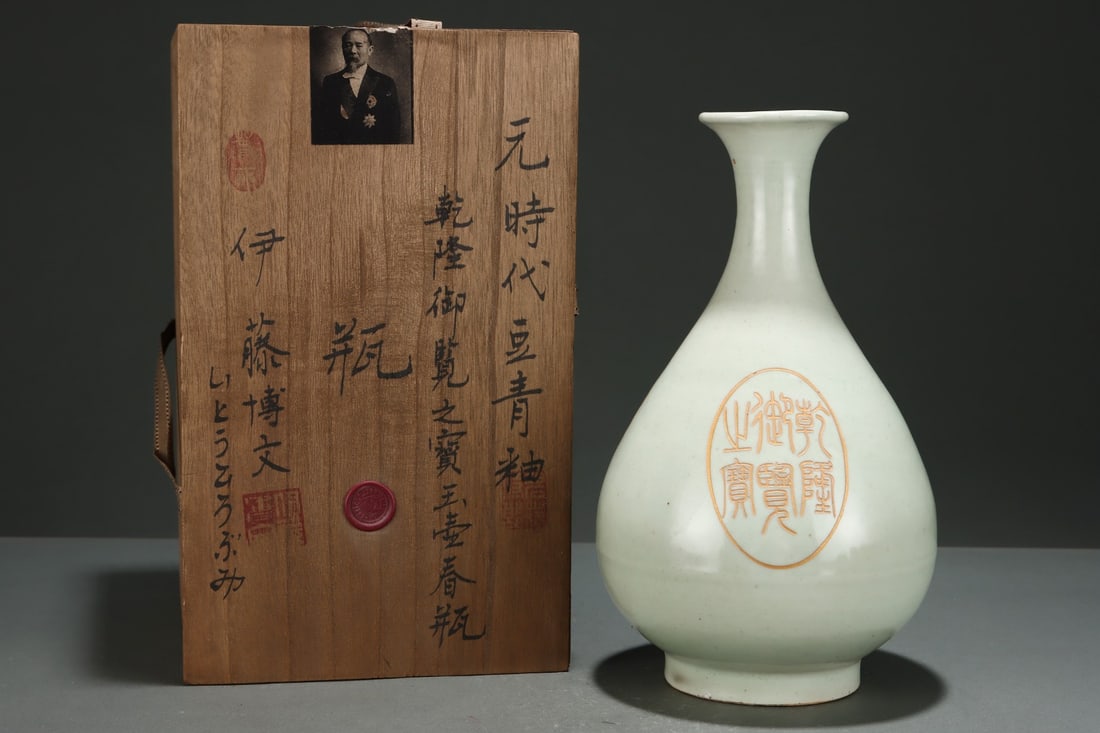 元時代豆青釉
乾隆御覽之寶玉壺春瓶
瓶
伊藤博文
いとうひろぶみ
乾隆
御覽
之寶